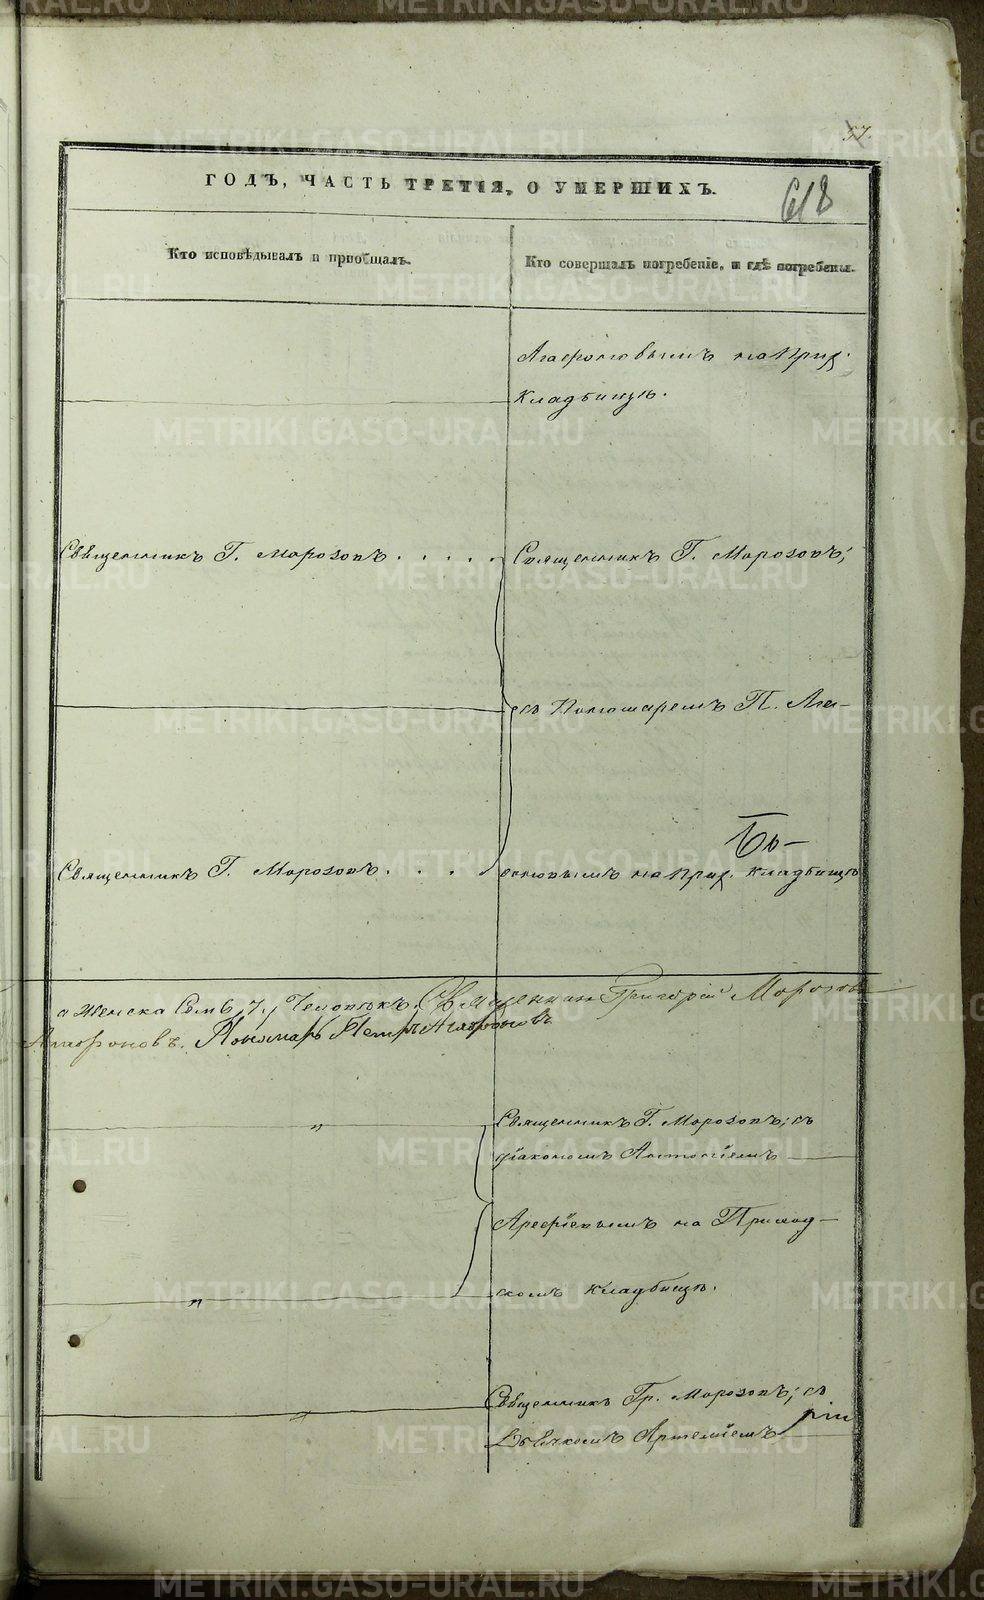 57.
ГОДЪ, ЧАСТЬ ТРЕТІЯ, О УМЕРШИХЪ.
618
Кто исповѣдывалъ и пріобщалъ.
Кто совершалъ погребеніе, и гдѣ погребены.
Агафоновымъ на прих.
кладбищѣ.
Священникъ Г. Морозовъ . . . . .
Священникъ Г. Морозовъ;
съ Пономаремъ П. Ага-
Священникъ Г. Морозовъ . . .
фоновымъ на прих. кладбищѣ
а женска семь, 7, человѣкъ. Священникъ Григорій Морозовъ
Агафоновъ. Пономарь Петръ Агафоновъ
Священникъ Г. Морозовъ; съ
діакономъ Антоніемъ
Арефіевымъ на Приход-
скомъ кладбищѣ.
Священникъ Гр. Морозовъ; съ
Дьячкомъ Артеміемъ
METRIKI.GASO-URAL.RU